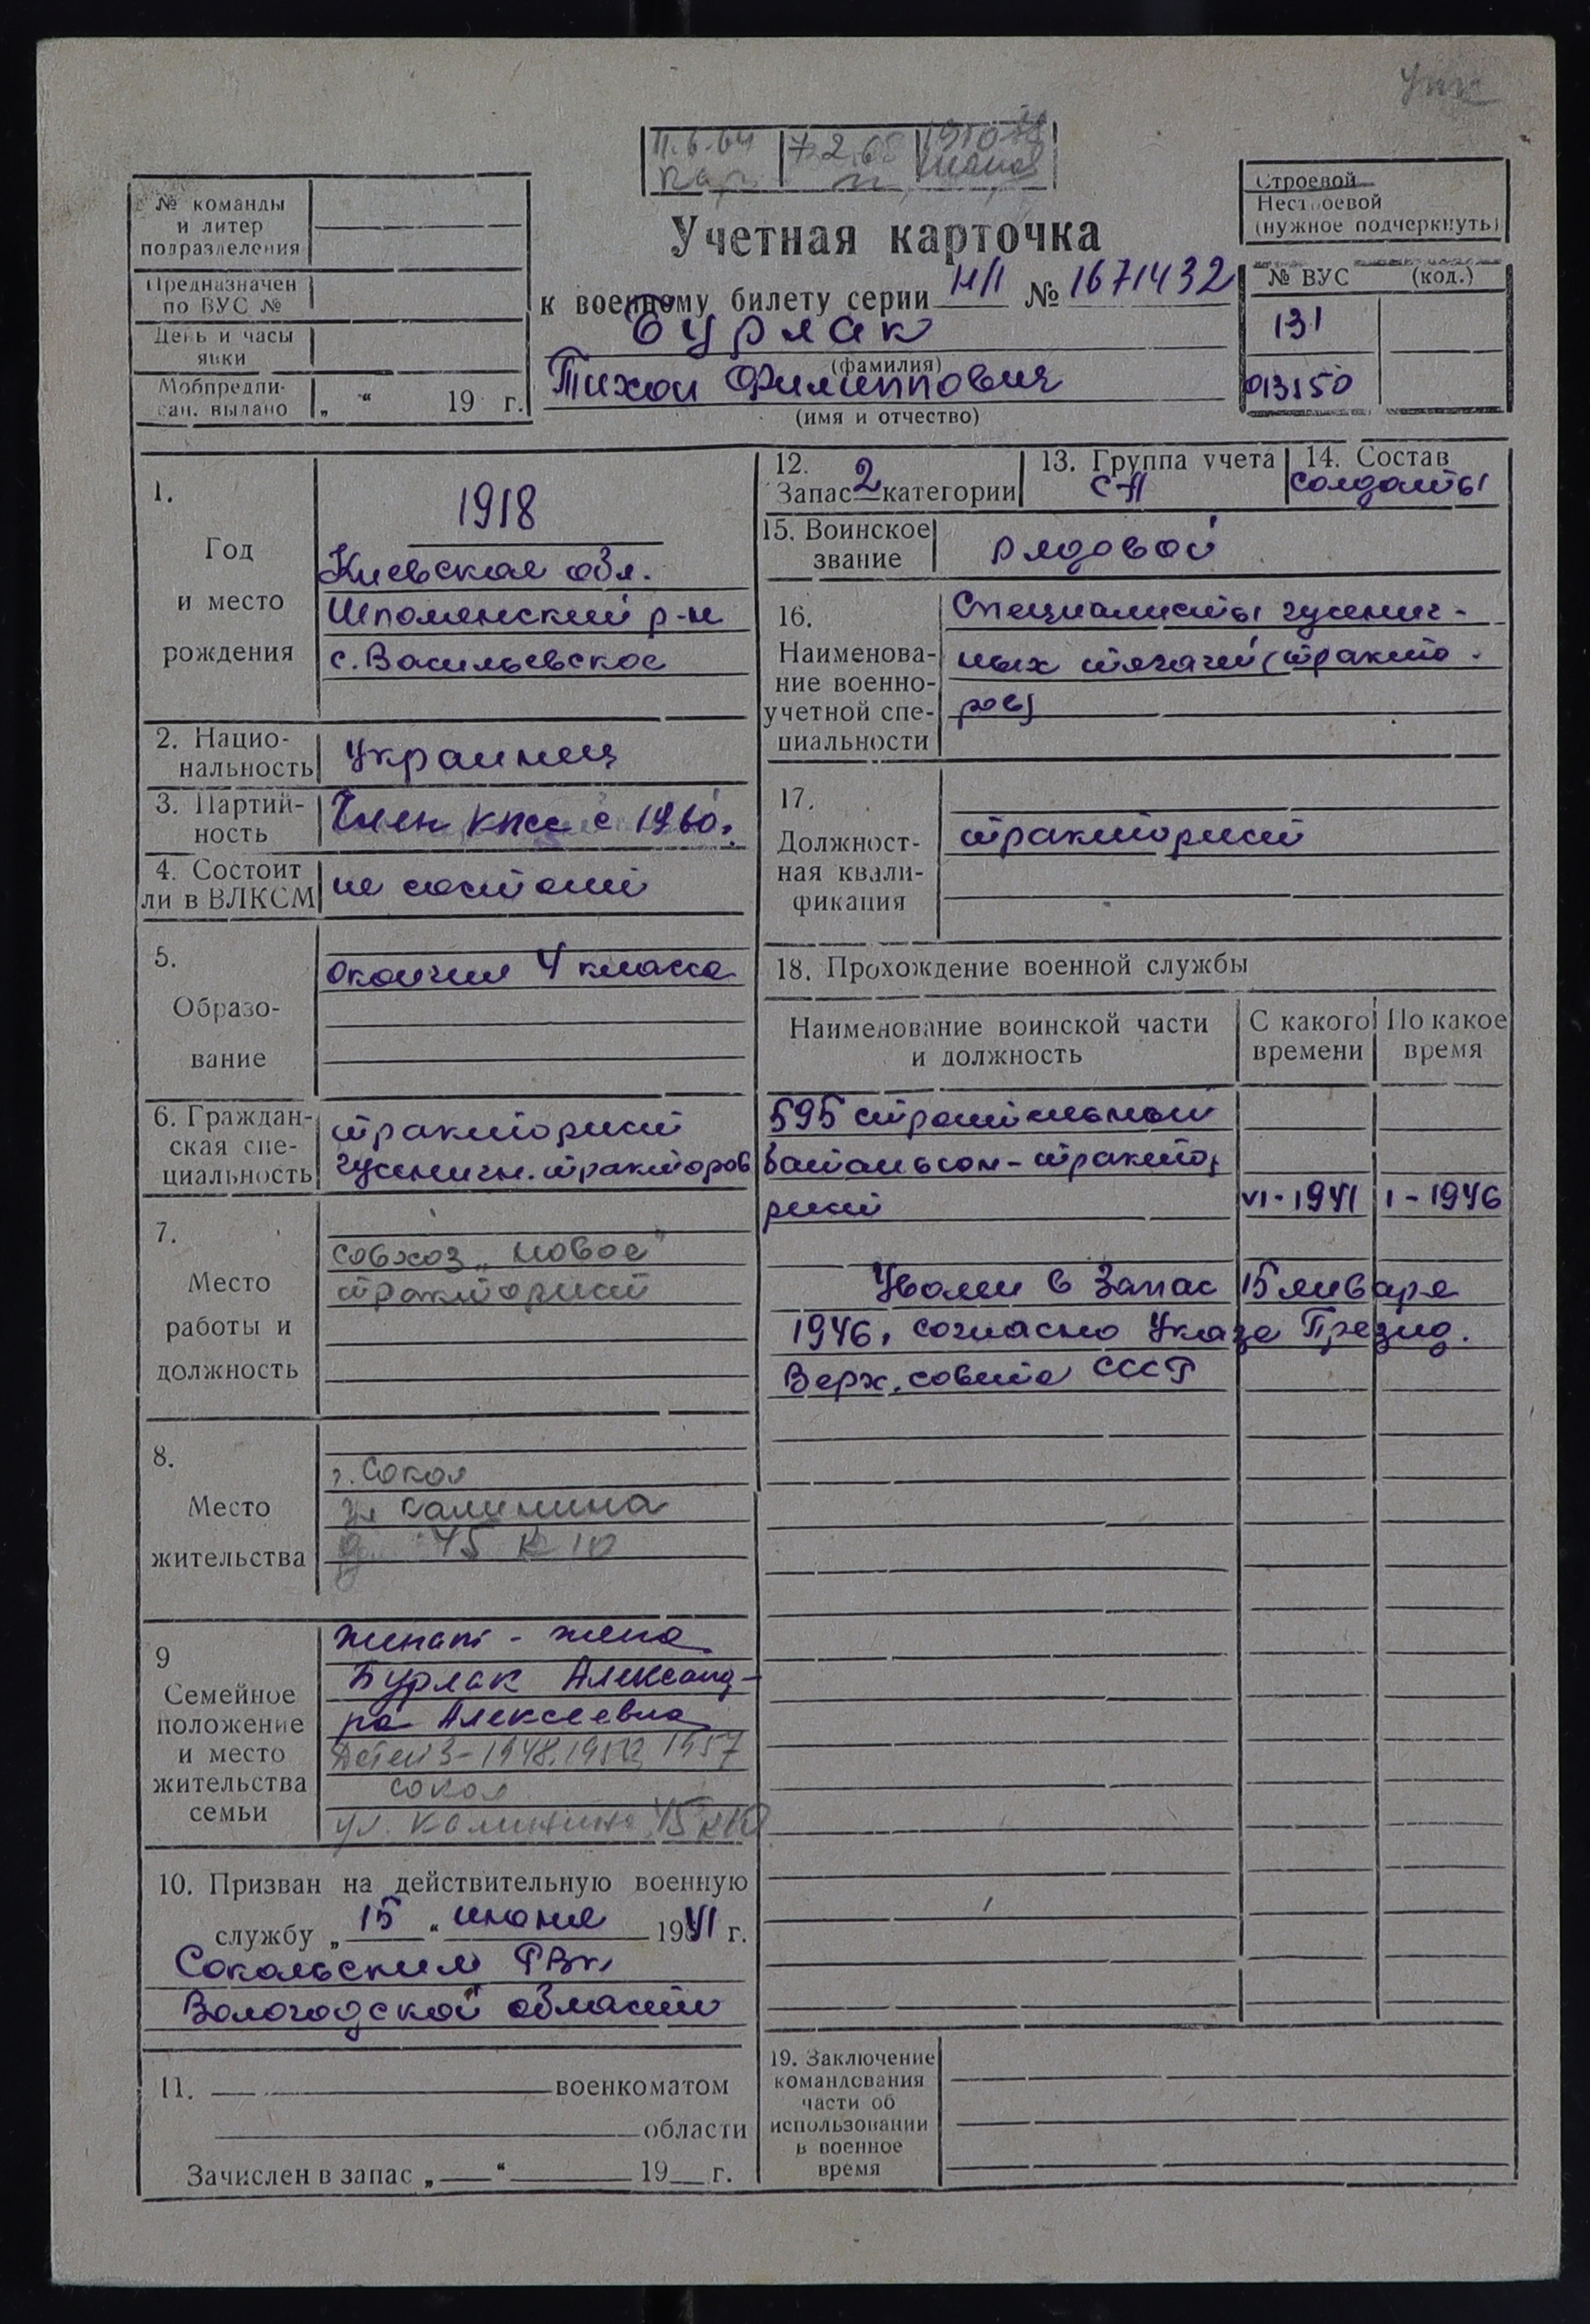 11.6.64
7.2.68
Учетная карточка
к военному билету серии НП № 1671432
Бурлак
(фамилия)
Тихон Филиппович
(имя и отчество)
№ команды
и литер
подразделения
Предназначен
по ВУС №
День и часы
явки
Мобпредпи-
сан. выдано „ “ 19 г.
Строевой
Нестроевой
(нужное подчеркнуть)
№ ВУС (код.)
131
013150
1.
Год
и место
рождения
1918
Киевская обл.
Шполянский р-н
с. Васильевское
2. Нацио-
нальность
Украинец
3. Партий-
ность
Член КПСС с 1960.
4. Состоит
ли в ВЛКСМ
не состоит
5.
Образо-
вание
окончил 4 класса
6. Граждан-
ская спе-
циальность
тракторист
гусеничн. тракторов
7.
Место
работы и
должность
совхоз „Новое“
тракторист
8.
Место
жительства
г. Сокол
ул Калинина
д 45 к 10
9
Семейное
положение
и место
жительства
семьи
женат - жена
Бурлак Александ-
ра Алексеевна
детей 3 - 1948, 1952, 1957
Сокол
ул. Калинина 45 к 10
10. Призван на действительную военную
службу „15“ июня 1941 г.
Сокольским РВК
Вологодской области
11. военкоматом
области
Зачислен в запас „ “ 19 г.
12.
Запас 2 категории
13. Группа учета
СА
14. Состав
солдаты
15. Воинское
звание
рядовой
16.
Наименова-
ние военно-
учетной спе-
циальности
Специалисты гусенич-
ных тягачей (тракто-
ров)
17.
Должност-
ная квали-
фикация
тракторист
18. Прохождение военной службы
Наименование воинской части
и должность
С какого
времени
По какое
время
595 строительный
батальон - тракто-
рист VI - 1941 I - 1946
Уволен в запас 15 января
1946, согласно Указа Презид.
Верх. совета СССР
19. Заключение
командования
части об
использовании
в военное
время